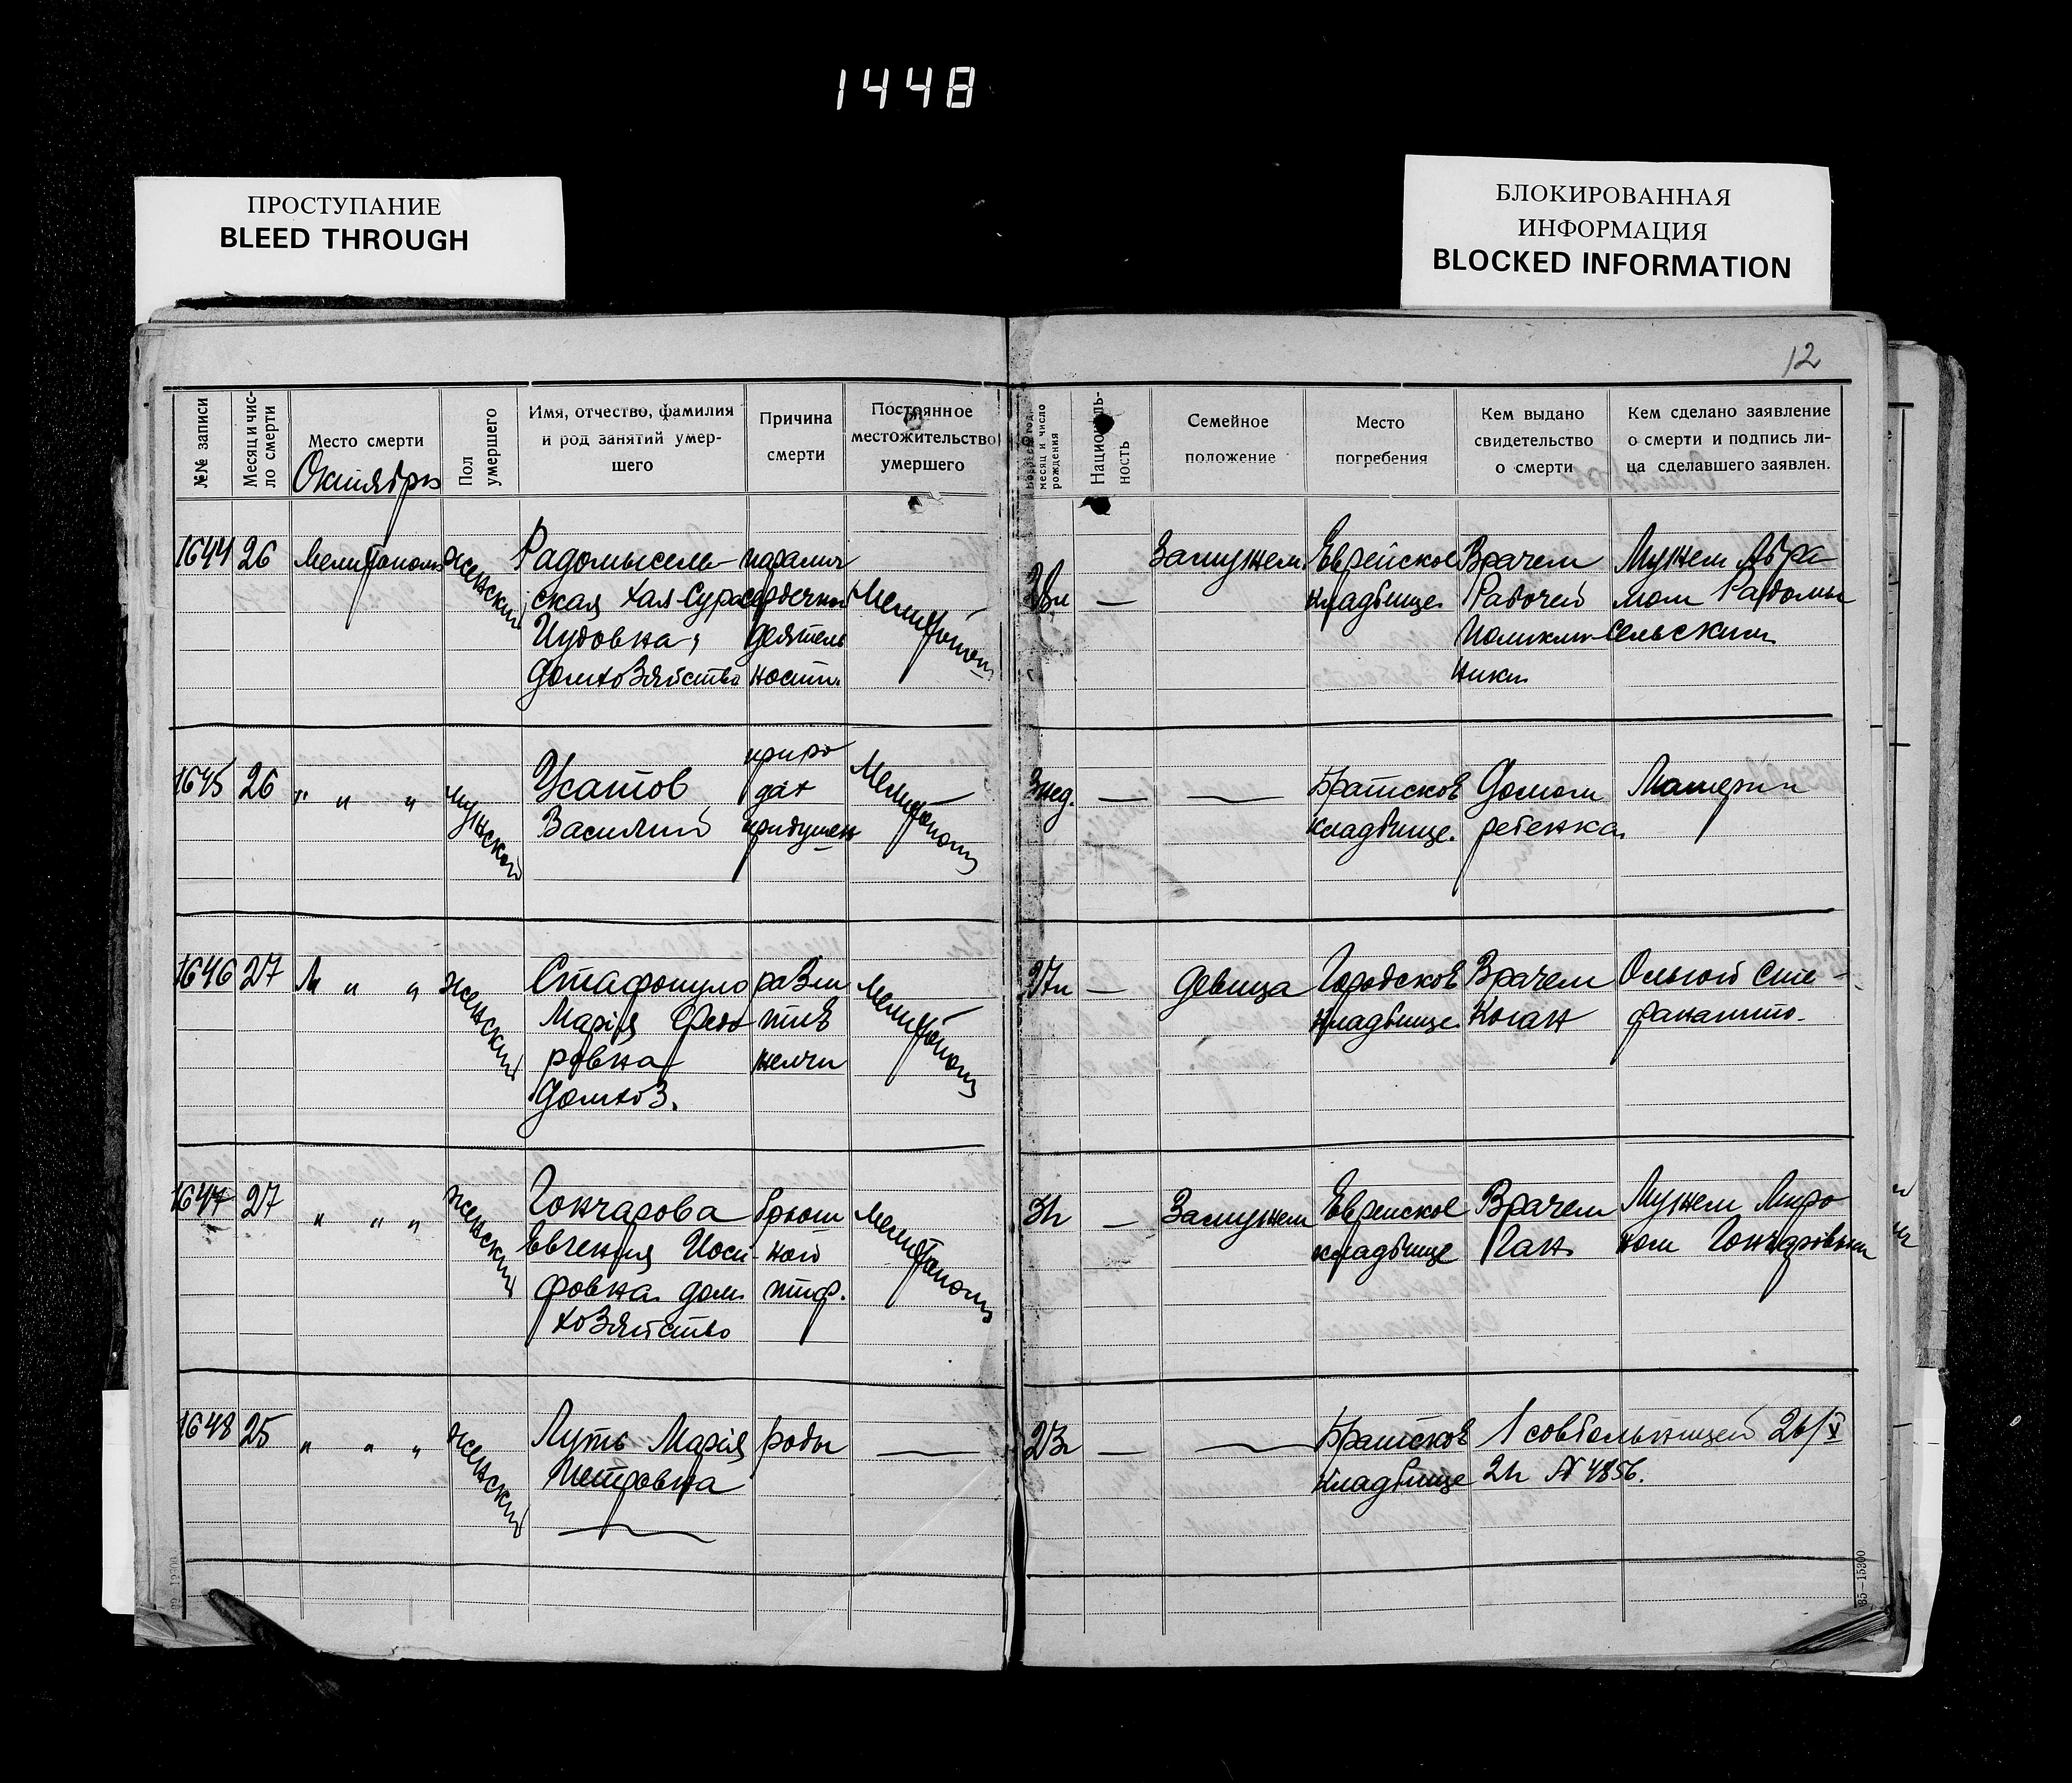 1448
ПРОСТУПАНИЕ
BLEED THROUGH
БЛОКИРОВАННАЯ
ИНФОРМАЦИЯ
BLOCKED INFORMATION
12
№№ записи
Месяц и чис-
ло смерти
Место смерти
Октябрь
Пол
умершего
Имя, отчество, фамилия
и род занятий умер-
шего
Причина
смерти
Постоянное
местожительство
умершего
месяц и число
рождения
Националь-
ность
Семейное
положение
Место
погребения
Кем выдано
свидетельство
о смерти
Кем сделано заявление
о смерти и подпись ли-
ца сделавшего заявлен.
1644
26
Мелитополь
женский
Радомысель-
ская Хая-Сура
Иудовна,
домхозяйство
паралич
сердечной
деятель
ности
Мелитополь
—
Замужем
Еврейское
кладбище
Врачем
Рабочей
Поликли-
ники
Мужем Абра
мом Радомы
сельским
1645
26
" " "
мужской
Усатов
Василий
приро
дах
придушен
Мелитополь
3 нед.
—
—
Братское
кладбище.
Домом
ребенка.
Матери
1646
27
М " "
женский
Стафопуло
Марія Федо
ровна
домхоз.
разли
тие
желчи
Мелитополь
27л
—
девица
Городское
кладбище
Врачем
Коган
Ольгой Сте-
фанатто.
1647
27
" " "
женский
Гончарова
Евгения Иоси
фовна дом
хозяйство
брюш
ной
тиф.
Мелитополь
—
Замужем
Еврейское
кладбище
Врачем
Ган
Мужем Миро
ном Гончаровым
1648
25
" " "
женский
Луть Марія
Петровна
роды
—
—
—
Братское
кладбище
1 совбольницей 26/X
21г № 4856.
85—15300